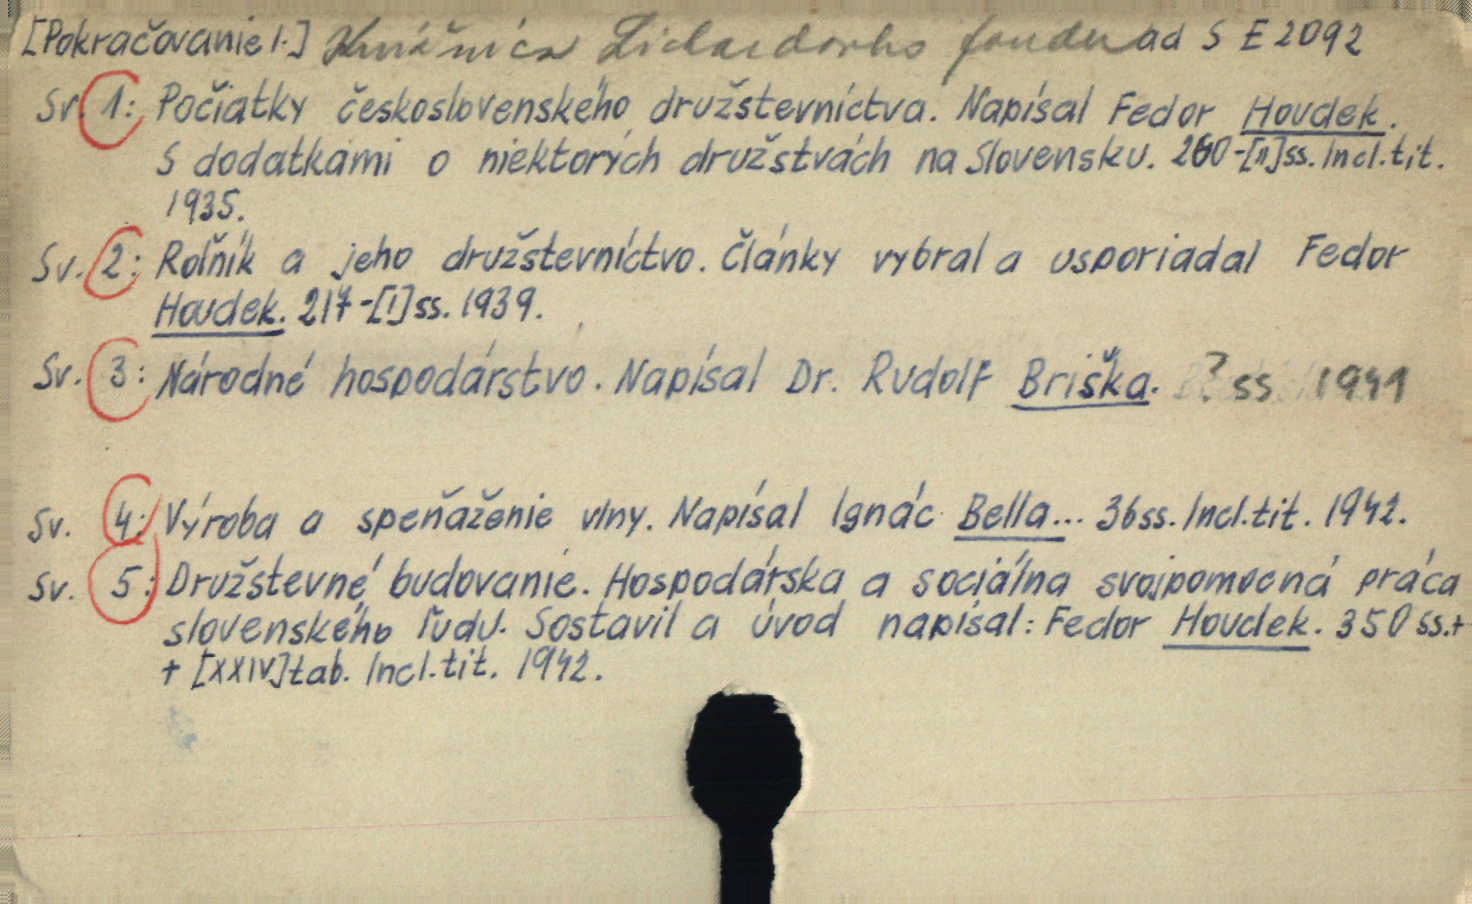 [Pokračovanie 1.] Knižnica Lichardovho fondu ad S E 2092
Sv. 1: Počiatky československého družstevníctva. Napísal Fedor Houdek.
S dodatkami o niektorých družstvách na Slovensku. 260-[II] ss. Incl. tit.
1935.
Sv. 2: Roľník a jeho družstevníctvo. Články vybral a usporiadal Fedor
Houdek. 217-[I] ss. 1939.
Sv. 3: Národné hospodárstvo. Napísal Dr. Rudolf Briška. ? ss 1941
Sv. 4: Výroba a speňaženie vlny. Napísal Ignác Bella... 36 ss. Incl. tit. 1942.
Sv. 5: Družstevné budovanie. Hospodárska a sociálna svojpomocná práca
slovenského ľudu. Sostavil a úvod napísal: Fedor Houdek. 350 ss. +
+ [XXIV] tab. Incl. tit. 1942.